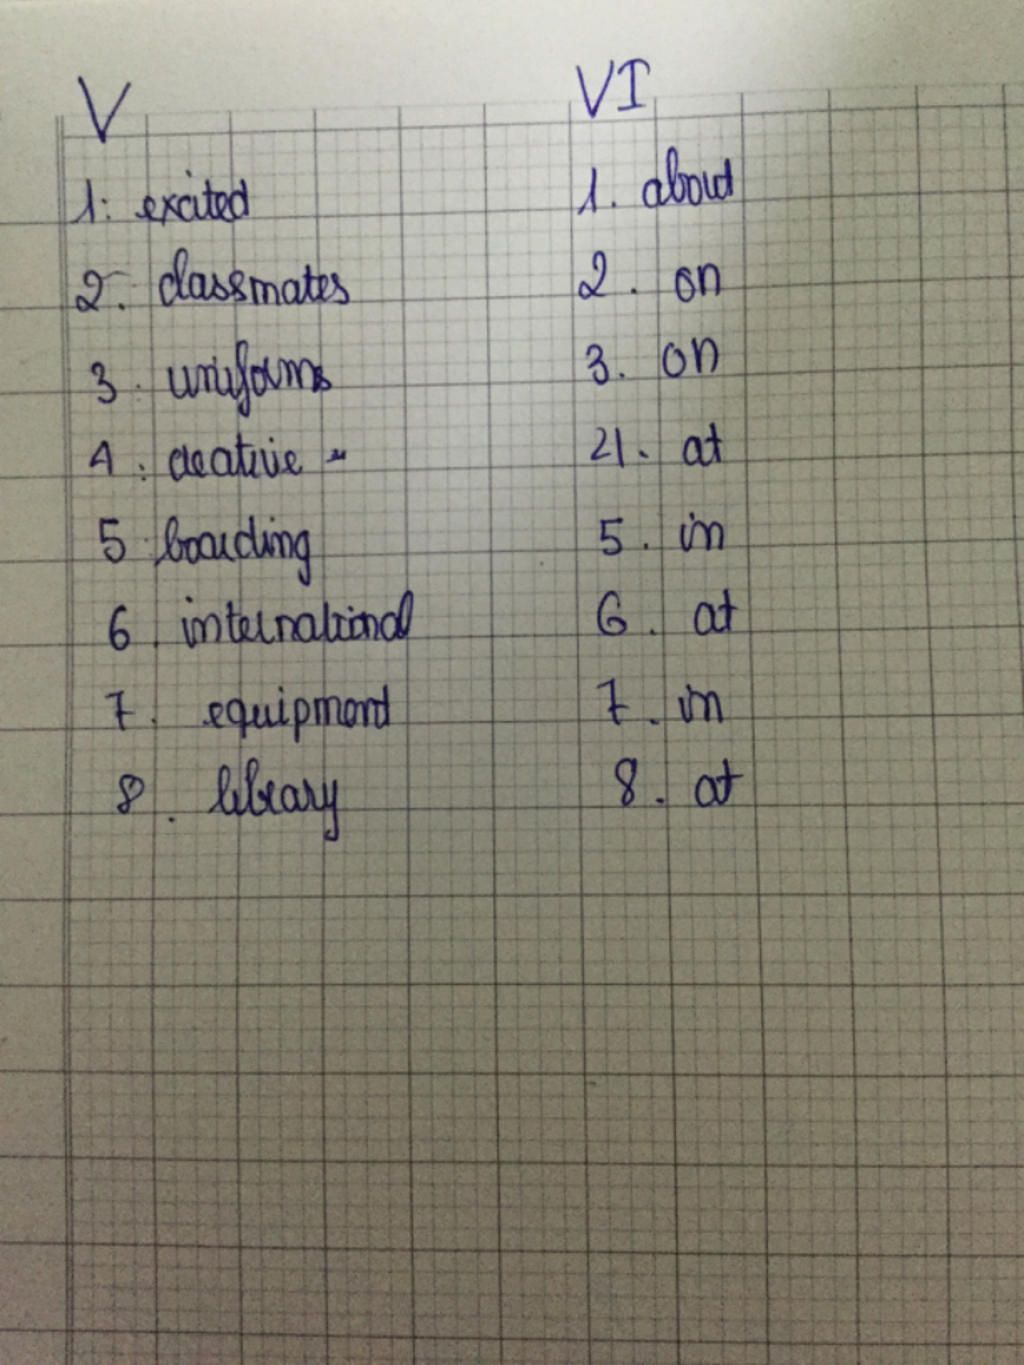 V
1: excited
2. classmates
3. uniforms
4. creative
5 boarding
6. international
7. equipment
8. library
VI
1. about
2. on
3. on
4. at
5. in
6. at
7. in
8. at